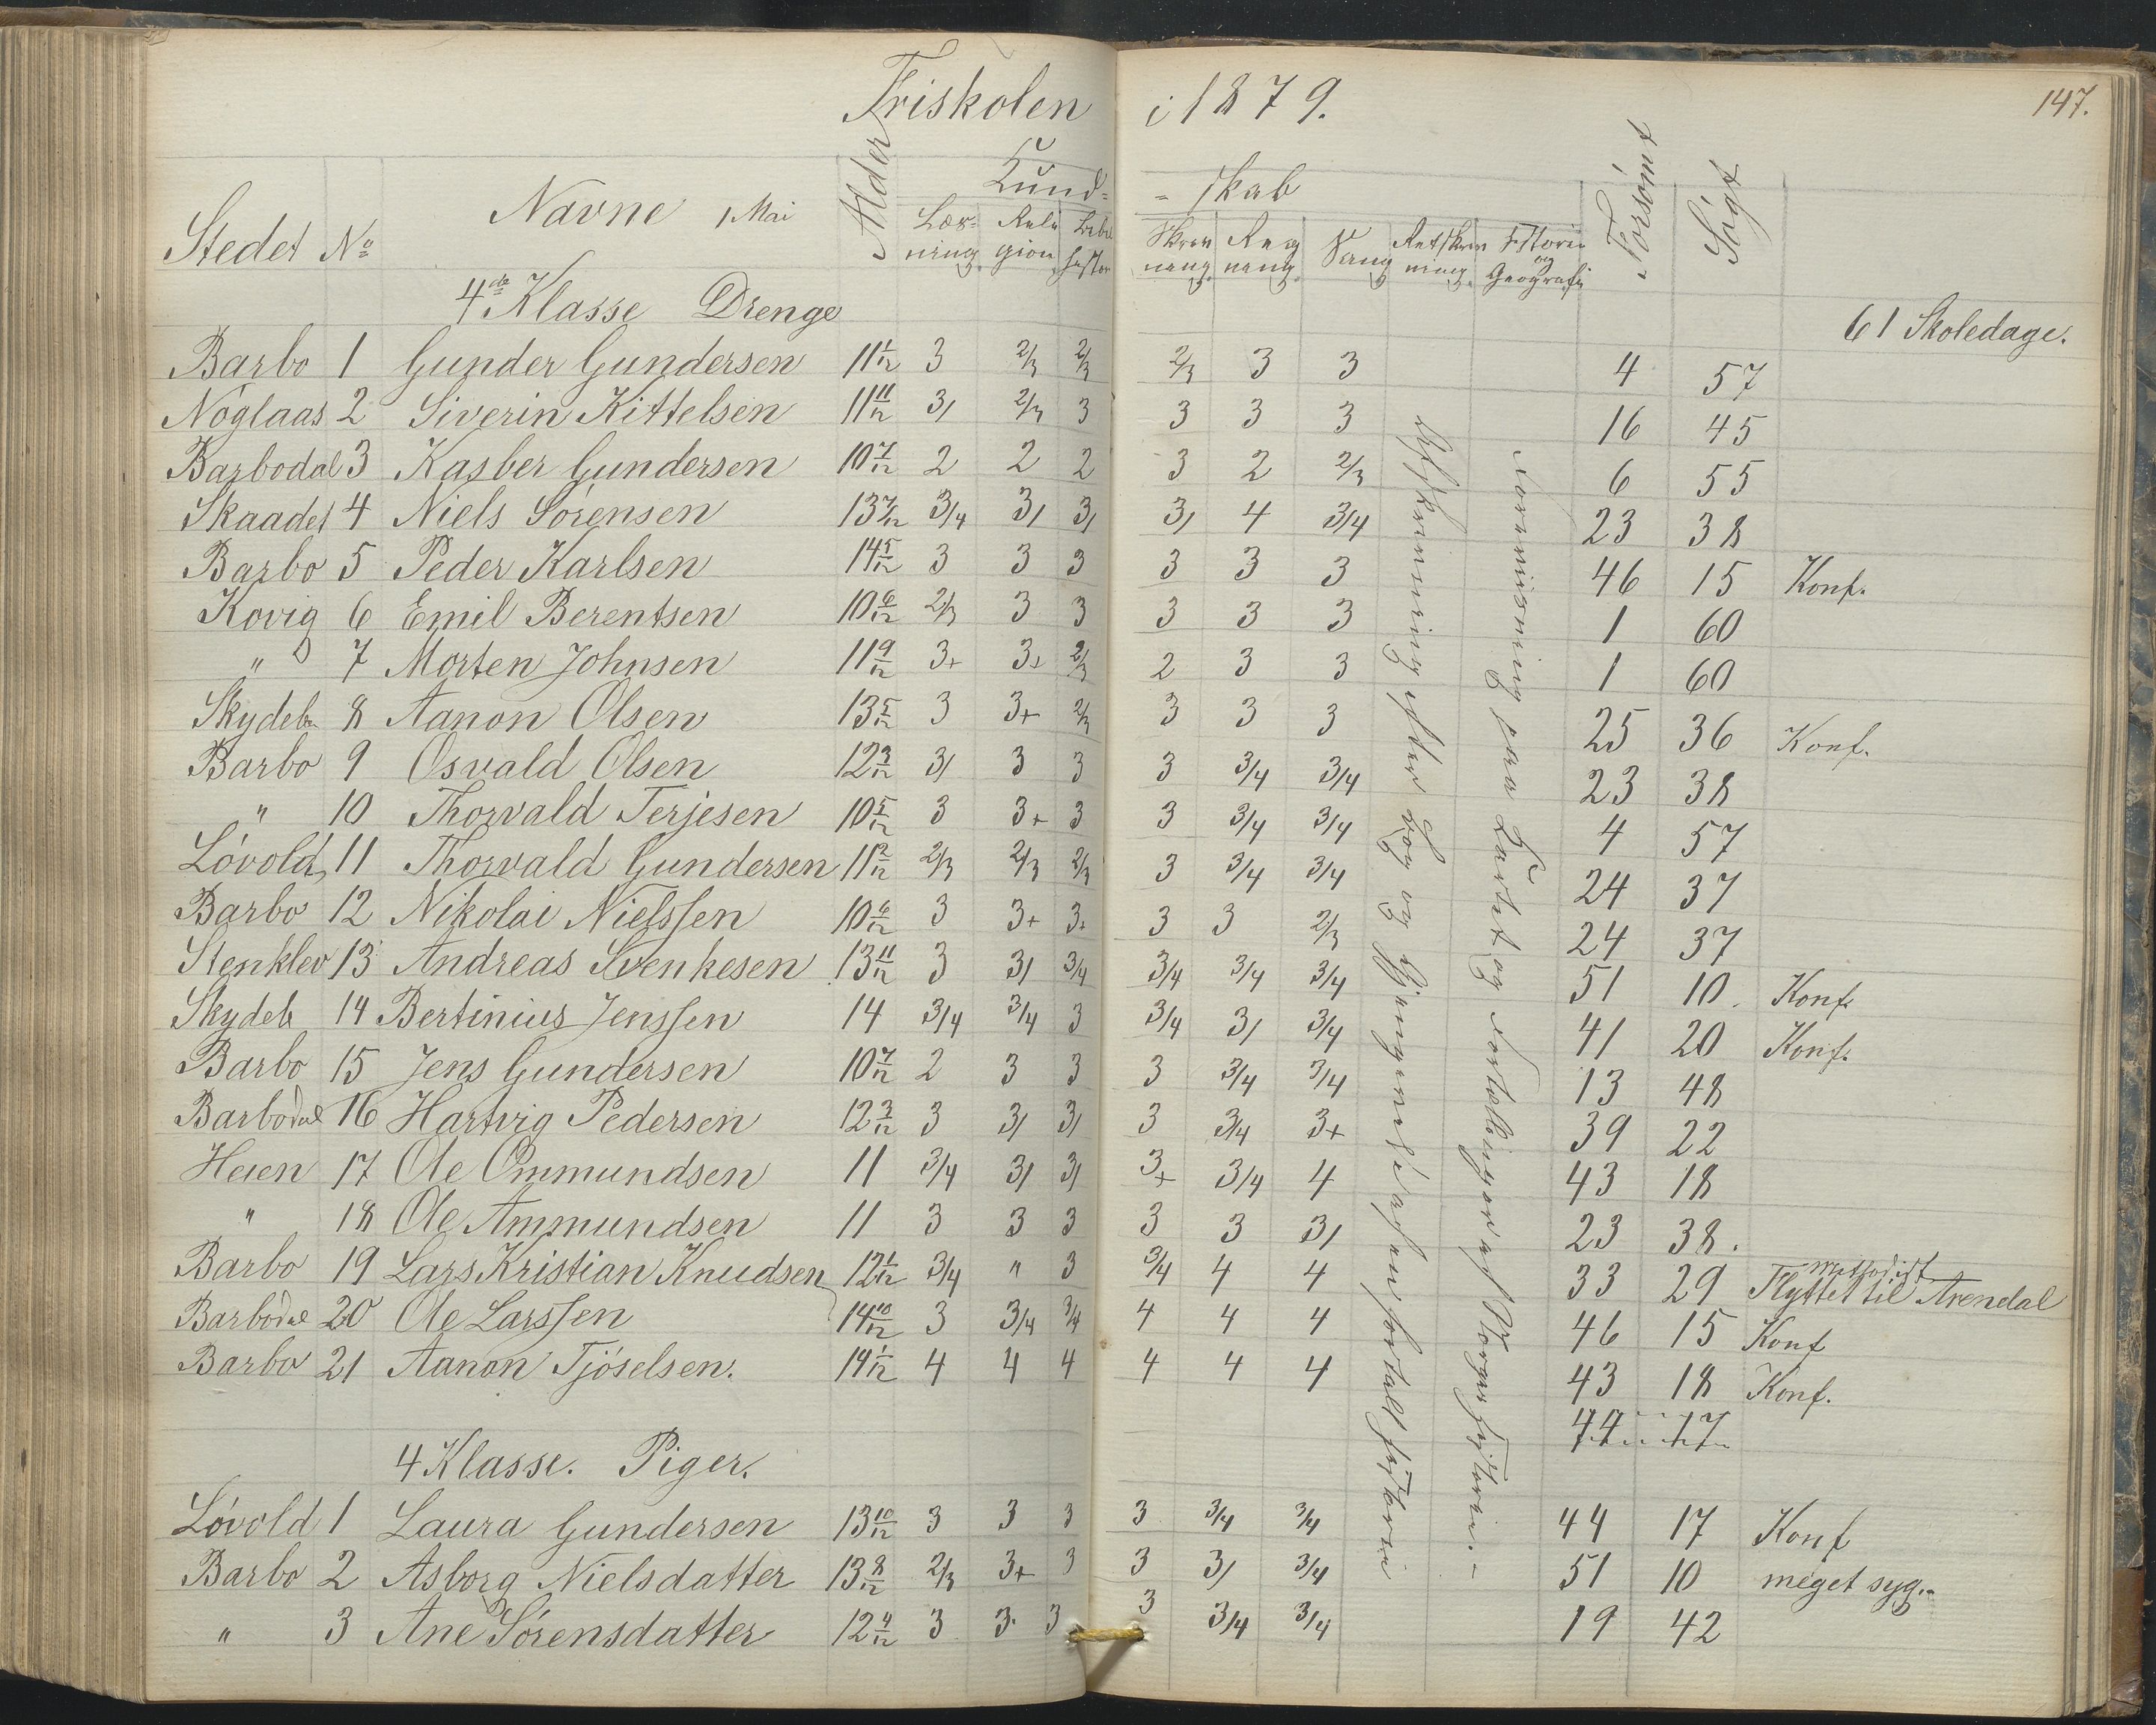 Friskolen i 1879. 147.
Stedet No Navne 1 Mai Alder Kund- -skab Forsømt Søgt
Læs- ning Reli gion Bibel histor Skriv ning Reg ning Sang Retskriv ning Historie og Geografi
4de Klasse Drenge
61 Skoledage.
Barbo 1 Gunder Gundersen 11 1/12 3 2/3 2/3 2/3 3 3 4 57
Nöglaas 2 Siverin Kittelsen 11 11/12 3/ 2/3 3 3 3 3 16 45
Barbodal 3 Kasber Gundersen 10 7/12 2 2 2 3 2 2/3 6 55
Skaadet 4 Niels Sörensen 13 7/12 3/4 3/ 3/ 3/ 4 3/4 23 38
Barbo 5 Peder Karlsen 14 5/12 3 3 3 3 3 3 46 15 Konf.
Kovig 6 Emil Berentsen 10 6/12 2/3 3 3 3 3 3 1 60
" 7 Morten Johnsen 11 9/12 3+ 3+ 2/3 2 3 3 1 60
Skydeb 8 Aanon Olsen 13 5/12 3 3+ 2/3 3 3 3 25 36 Konf.
Barbo 9 Osvald Olsen 12 3/12 3/ 3 3 3 3/4 3/4 23 38
" 10 Thorvald Terjesen 10 5/12 3 3+ 3 3 3/4 3/4 4 57
Lövold 11 Thorvald Gundersen 11 2/12 2/3 2/3 2/3 3 3/4 3/4 24 37
Barbo 12 Nikolai Nielssen 10 6/12 3 3+ 3+ 3 3 2/3 24 37
Stenklev 13 Andreas Svenkesen 13 11/12 3 3/ 3/4 3/4 3/4 3/4 51 10. Konf.
Skydeb 14 Bertinius Jenssen 14 3/4 3/4 3 3/4 3/ 3/4 41 20 Konf.
Barbo 15 Jens Gundersen 10 7/12 2 3 3 3 3/4 3/4 13 48
Barbodal 16 Hartvig Pedersen 12 3/12 3 3/ 3/ 3 3/4 3+ 39 22
Heien 17 Ole Ommundsen 11 3/4 3/ 3/ 3+ 3/4 4 43 18
" 18 Ole Ammundsen 11 3 3 3 3 3 3/ 23 38.
Barbo 19 Lars Kristian Knudsen 12 1/12 3/4 " 3 3/4 4 4 33 29 Flyttet til Arendal
Methodist
Barbodal 20 Ole Larssen 14 10/12 3 3/4 3/4 4 4 4 46 15 Konf
Barbo 21 Aanon Tjöselsen. 14 1/12 4 4 4 4 4 4 43 18 Konf.
44 17
4 Klasse. Piger.
Lövold 1 Laura Gundersen 13 10/12 3 3 3 3 3/4 3/4 44 17 Konf
Barbo 2 Asborg Nielsdatter 13 8/12 2/3 3+ 3 3 3/ 3/4 51 10 meget syg.
" 3 Ane Sörensdatter 12 4/12 3 3 3 3 3/4 3/4 19 42
Afskrivning efter Bog og
Forevisning paa Kartet og Fortællinger af Norges Historie.